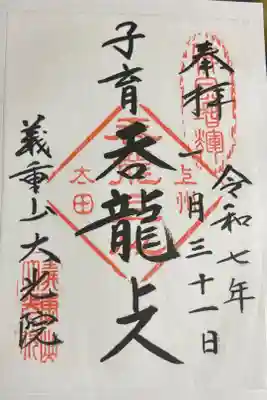 奉拝
令和七年
一月三十一日
子育呑龍上人
上州
太田
義重山大光院